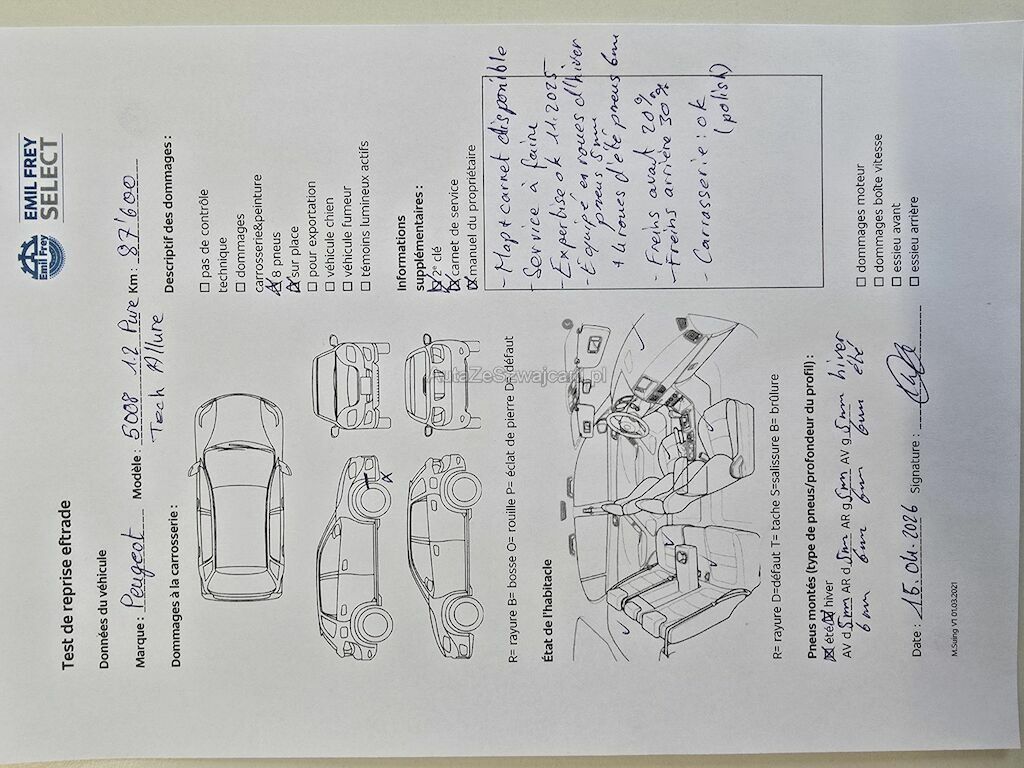 EMIL FREY
SELECT
Emil Frey
Test de reprise eftrade
Données du véhicule
Marque : Peugeot Modèle : 5008 1.2 Pure Km : 87'600
Tech Allure
Dommages à la carrosserie :
Descriptif des dommages :
☐ pas de contrôle
technique
☐ dommages
carrosserie&peinture
☒ 8 pneus
☒ sur place
☐ pour exportation
☐ véhicule chien
☐ véhicule fumeur
☐ témoins lumineux actifs
R= rayure B= bosse O= rouille P= éclat de pierre D=défaut
Informations
supplémentaires :
☒ 2° clé
☒ carnet de service
☒ manuel du propriétaire
État de l'habitacle
- Map+carnet disponible
- Service à faire
- Expertise ok 11.2025
- Équipé en roues d'hiver
pneus 5mm
+ 4 roues d'été pneus 6mm
- Freins avant 20%
- Freins arrière 30%
- Carrosserie : ok
(polish)
R= rayure D=défaut T= tache S=salissure B= brûlure
Pneus montés (type de pneus/profondeur du profil) :
☒ été ☒ hiver
AV d 5mm AR d 5mm AR g 5mm AV g 5mm hiver
6mm 6mm 6mm 6mm été
☐ dommages moteur
☐ dommages boîte vitesse
☐ essieu avant
☐ essieu arrière
Date : 15.04.2026 Signature :
M.Suing V1 01.03.2021
AutaZeSzwajcarii.pl